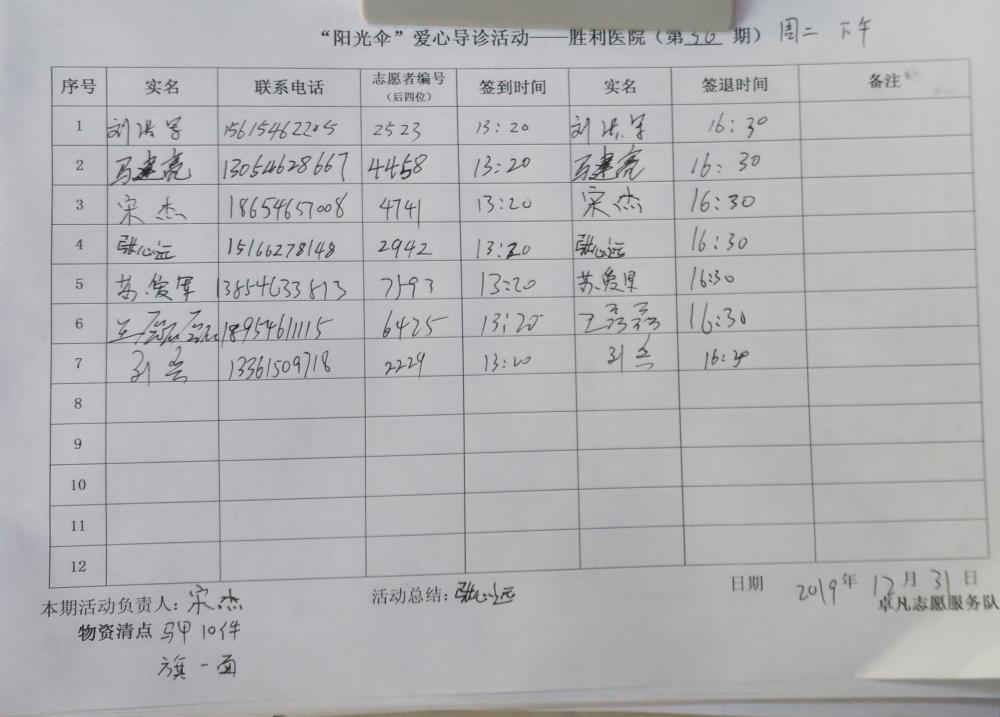 “阳光伞”爱心导诊活动——胜利医院（第 36 期） 周二 下午
序号 实名 联系电话 志愿者编号（后四位） 签到时间 实名 签退时间 备注
1 刘洪军 15615462205 2523 13:20 刘洪军 16:30
2 马建亮 13054628667 4458 13:20 马建亮 16:30
3 宋杰 18654657008 4741 13:20 宋杰 16:30
4 张心远 15166278148 2942 13:20 张心远 16:30
5 苏爱军 13854633813 7593 13:20 苏爱军 16:30
6 王磊磊 18954611115 6425 13:20 王磊磊 16:30
7 刘 13361509718 2229 13:20 刘 16:30
8
9
10
11
12
本期活动负责人：宋杰 活动总结：张心远 日期 2019年 12月 31日
卓凡志愿服务队
物资清点 马甲 10件
旗 一面